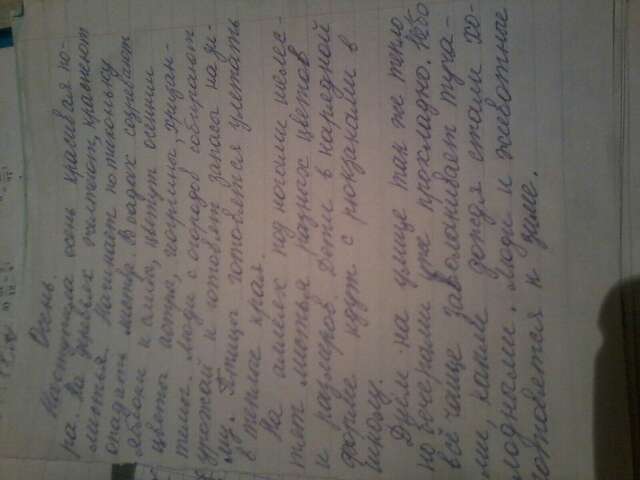 Осень.
Наступила осень красивая по-
ра. На деревьях желтеют, краснеют
листья. Начинает потихоньку
опадать листва. В садах созревает
яблоки и слива, цветут осенние
цветы астра, георгина, хризан-
тема. Люди с огородов собирают
урожай и готовят запаса на зи-
му. Птицы готовятся улетать
в теплые края.
На аллеях под ногами шелес-
тят листья разных цветов
и размеров. Дети в нарядной
форме идут с рюкзаками в
школу.
Днём на улице так же тепло
но вечерами уже прохладно. Небо
всё чаще заволакивает туча-
ми, капли дождя стали хо-
лодными. Люди и животное
готовятся к зиме.